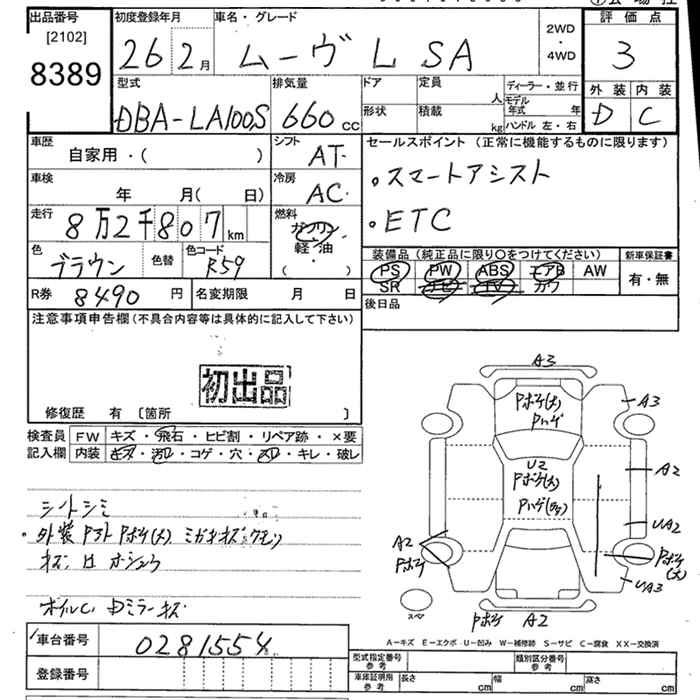 出品番号
[2102]
8389
初度登録年月
26 2月
車名・グレード
ムーヴ L SA
2WD
・
4WD
評価点
3
型式
DBA-LA100S
排気量
660 cc
ドア
定員
人
形状
積載
kg
ディーラー・並行
モデル年式 年
ハンドル 左・右
外装 内装
D C
車歴
自家用・( )
シフト
AT
車検
年 月( 日)
冷房
AC
走行
8万2千807 km
燃料
ガソリン
軽・油
( )
色
ブラウン
色替
色コード
R59
R券 8490 円
名変期限 月 日
セールスポイント (正常に機能するものに限ります)
。スマートアシスト
。ETC
装備品 (純正品に限り○をつけてください)
PS PW ABS エアB AW
SR ナビ TV カワ
新車保証書
有・無
後日品
注意事項申告欄(不具合内容等は具体的に記入して下さい)
初出品
修復歴 有 〔箇所 〕
検査員記入欄
FW キズ・飛石・ヒビ割・リペア跡・×要
内装 キズ・汚れ・コゲ・穴・スレ・キレ・破レ
シートシミ
外装
A3
A3
A2
UA2
UA3
Pボケ(大)
Pハゲ
U2
Pボケ(大)
A2
Pボケ
Pボケ(大)
Pボケ A2
スペア
A－キズ E－エクボ U－凹み W－補修跡 S－サビ C－腐食 XX－交換済
車台番号 0281554
登録番号
型式指定番号
参考
類別区分番号
参考
車庫証明用
参考
長さ cm 幅 cm 高さ cm